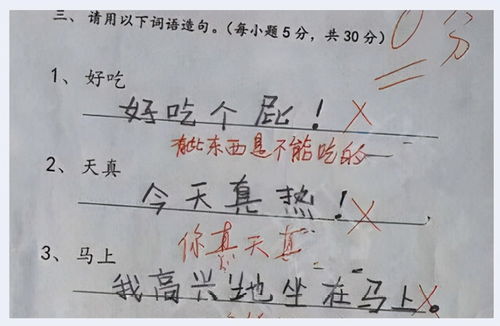 三、请用以下词语造句。(每小题5分，共30分)
0分
1、好吃
好吃个屁！
有些东西是不能吃的
2、天真
今天真热！
你真天真
3、马上
我高兴地坐在马上。